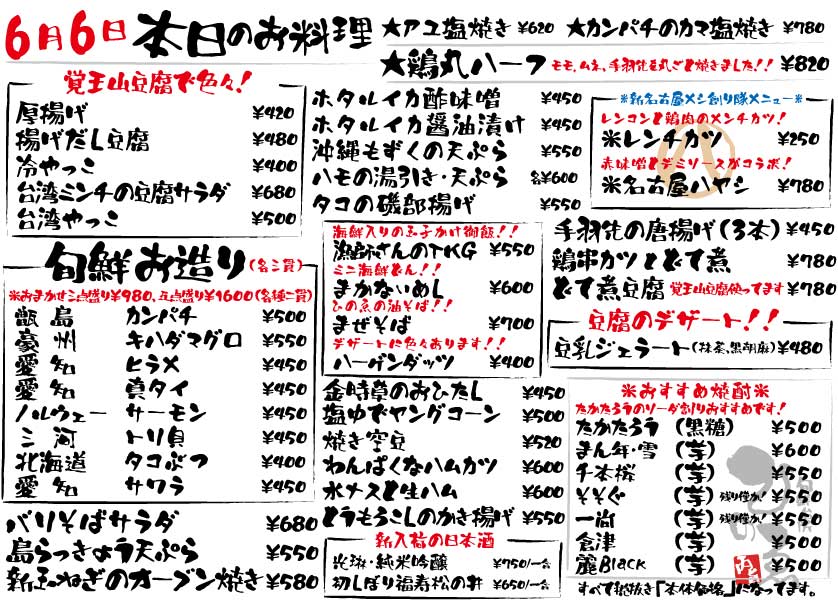 6月6日 本日のお料理
★アユ塩焼き ¥620 ★カンパチのカマ塩焼き ¥780
★鶏丸ハーフ モモ、ムネ、手羽先を丸ごと焼きました!! ¥820
覚王山豆腐で色々!
厚揚げ ¥420
揚げだし豆腐 ¥480
冷やっこ ¥400
台湾ミンチの豆腐サラダ ¥680
台湾やっこ ¥500
旬鮮お造り(各二貫)
※おまかせ三点盛り¥980、五点盛り¥1600(各種二貫)
甑島 カンパチ ¥500
豪州 キハダマグロ ¥550
愛知 ヒラメ ¥450
愛知 真タイ ¥450
ノルウェー サーモン ¥450
三河 トリ貝 ¥450
北海道 タコぶつ ¥400
愛知 サワラ ¥450
バリそばサラダ ¥680
島らっきょう天ぷら ¥550
新玉ねぎのオーブン焼き ¥580
ホタルイカ酢味噌 ¥450
ホタルイカ醤油漬け ¥450
沖縄もずくの天ぷら ¥550
ハモの湯引き・天ぷら 各¥600
タコの磯部揚げ ¥550
海鮮入りの玉子かけ御飯!!
漁師さんのTKG ¥550
ミニ海鮮どん!!
まかないめし ¥600
ひの魚の油そば!!
まぜそば ¥700
デザートに色々あります!!
ハーゲンダッツ ¥400
金時草のおひたし ¥450
塩ゆでヤングコーン ¥500
焼き空豆 ¥520
わんぱくなハムカツ ¥600
水ナスと生ハム ¥600
とうもろこしのかき揚げ ¥550
新入荷の日本酒
光琳・純米吟醸 ¥750/一合
初しぼり福寿松の井 ¥650/一合
※新名古屋メシ創り隊メニュー※
レンコンと鶏肉のメンチカツ!
※レンチカツ ¥250
赤味噌とデミソースがコラボ!
※名古屋ハヤシ ¥780
手羽先の唐揚げ(3本) ¥450
鶏串カツとどて煮 ¥780
どて煮豆腐 覚王山豆腐使ってます ¥780
豆腐のデザート!!
豆乳ジェラート(抹茶、黒胡麻) ¥480
※おすすめ焼酎※
たかたろうのソーダ割りおすすめです!
たかたろう (黒糖) ¥500
まん年・雪 (芋) ¥600
千本桜 (芋) ¥550
そそぐ (芋) 残り僅か! ¥550
一尚 (芋) 残り僅か! ¥550
倉津 (芋) ¥500
麗Black (芋) ¥500
すべて税抜き「本体価格」になってます。